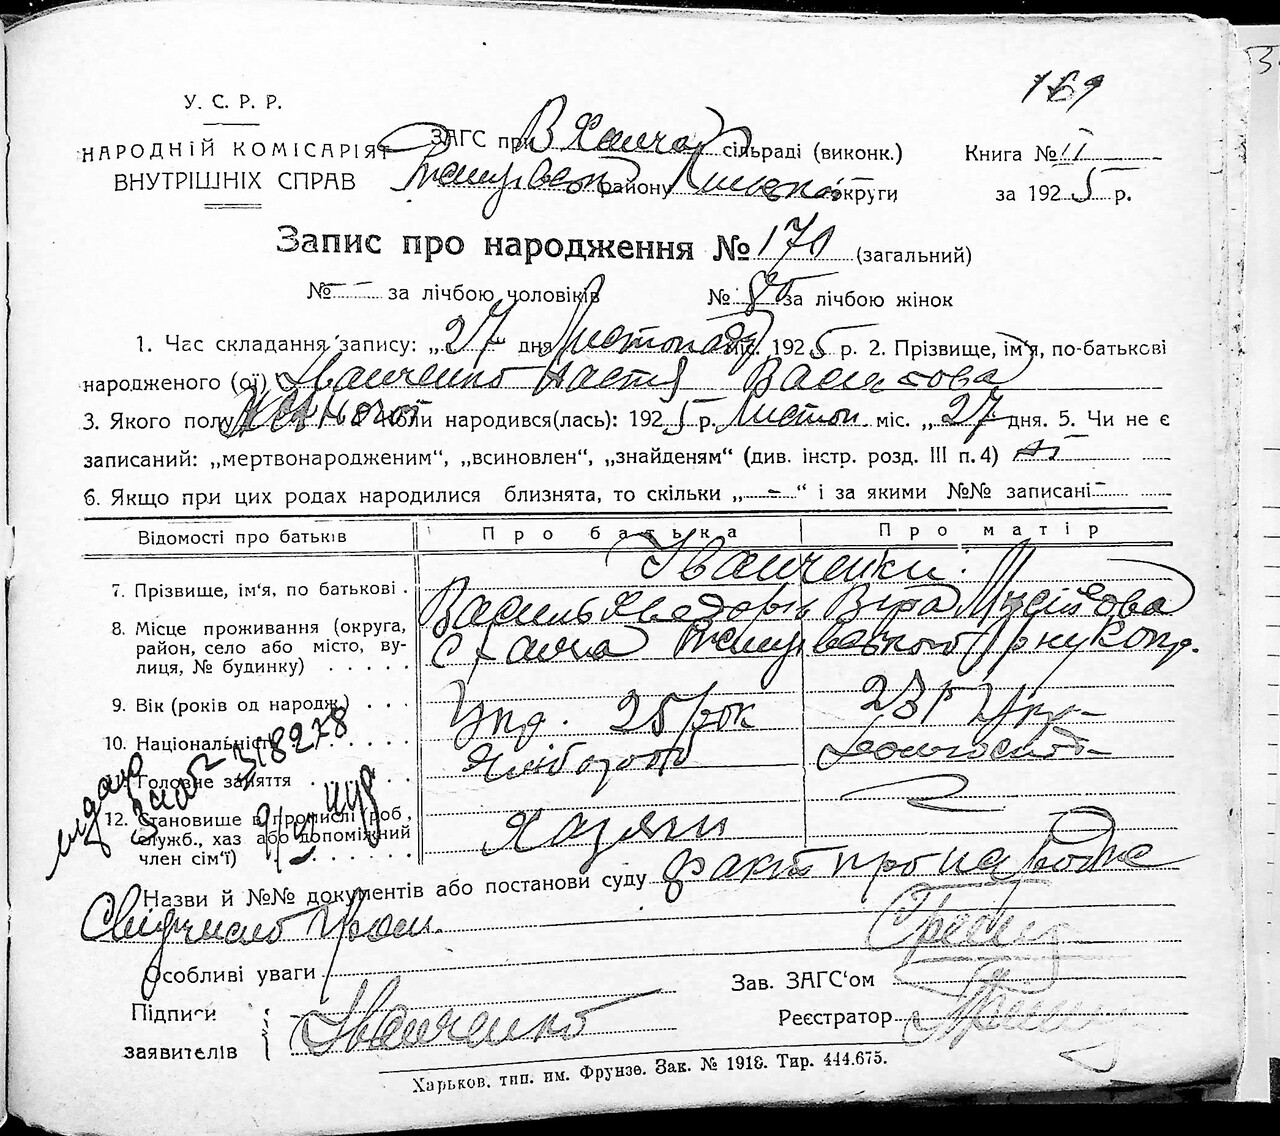 169
У. С. Р. Р.
НАРОДНІЙ КОМІСАРІЯТ
ВНУТРІШНІХ СПРАВ
ЗАГС при В Ханча сільраді (виконк.)
району округи
Книга № II
за 1925 р.
Запис про народження № 170 (загальний)
№ — за лічбою чоловіків № 85 за лічбою жінок
1. Час складання запису: „27 дня Листопада міс. 1925 р. 2. Прізвище, ім'я, по-батькові
народженого (ої) Іванченко Настя Василова
3. Якого полу Жіночої Коли народився(лась): 1925 р. Листоп. міс. „27 дня. 5. Чи не є
записаний: „мертвонародженим“, „всиновлен“, „знайденям“ (див. інстр. розд. III п.4)
6. Якщо при цих родах народилися близнята, то скільки „—“ і за якими №№ записані —
Відомості про батьків
Про батька
Про матір
Іванченки
7. Прізвище, ім'я, по батькові
Василь Хведорів Віра Мусійова
8. Місце проживання (округа, район, село або місто, вулиця, № будинку)
9. Вік (років од народж.)
Укр. 25 рок
23 р Укр
10. Національність
Головне заняття
Хлібороб
318278
12. Становище в промислі роб., служб., хаз або допоміжний член сім'ї)
Хазяїн
Назви й №№ документів або постанови суду факт про народже
Свідчило
Особливі уваги
Зав. ЗАГС'ом
Підписи
заявителів
Іванченко
Реєстратор
Харьков. тип. им. Фрунзе. Зак. № 1918. Тир. 444.675.